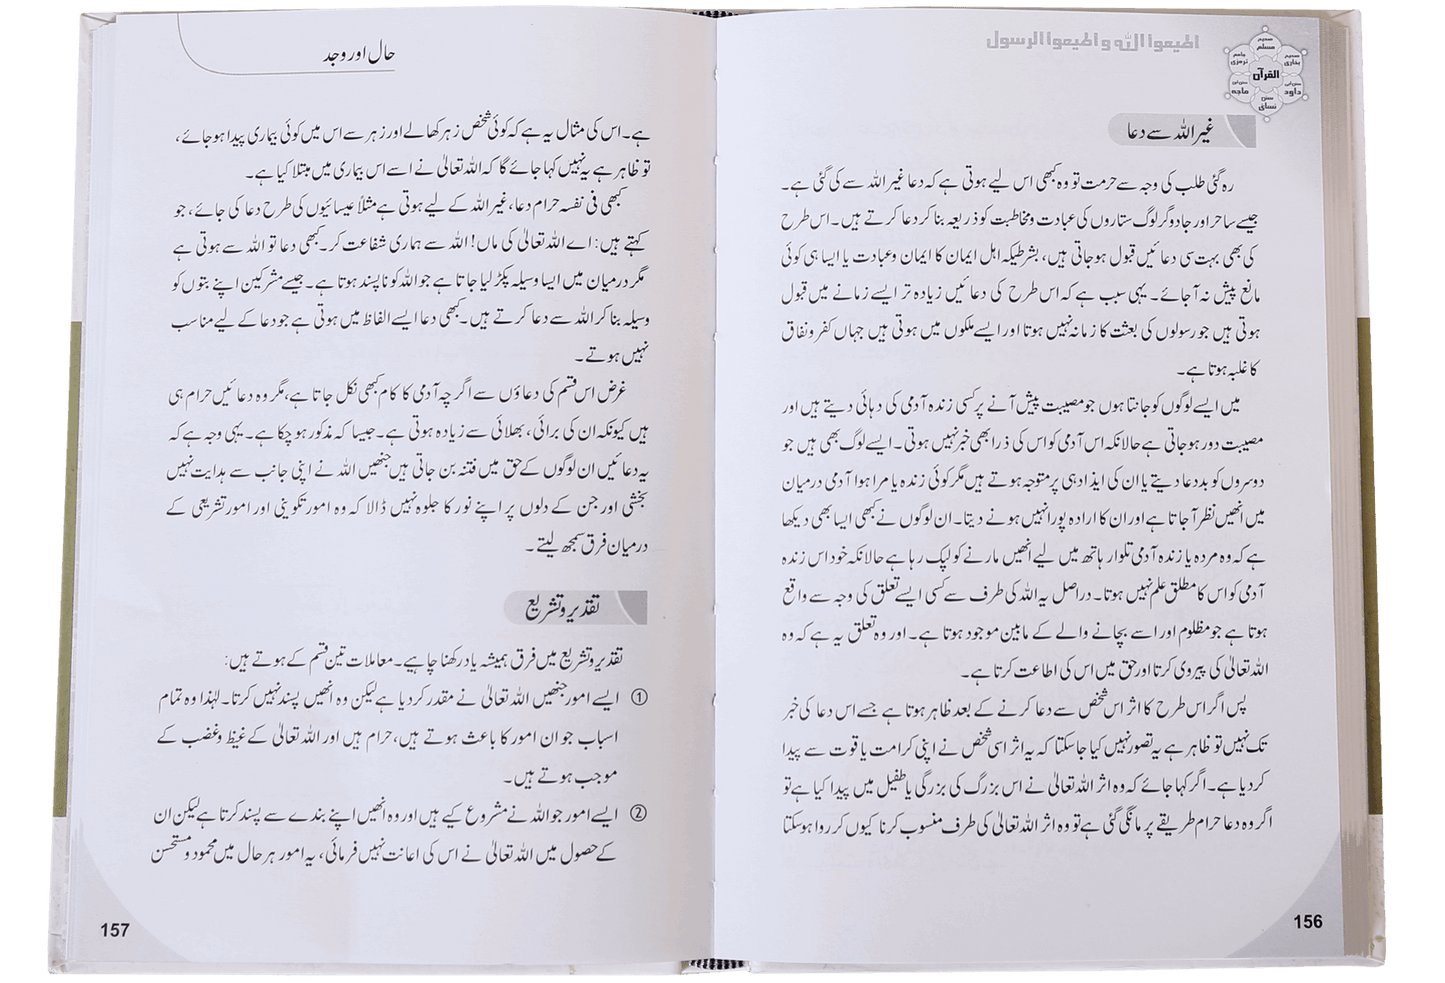 اطیعوا اللہ و اطیعوا الرسول
صحیح مسلم
صحیح بخاری
جامع ترمذی
القرآن
سنن ابی داود
سنن ابن ماجہ
سنن نسائی
غیر اللہ سے دعا
رہ گئی طلب کی وجہ سے حرمت تو وہ کبھی اس لیے ہوتی ہے کہ دعا غیر اللہ سے کی گئی ہے۔
جیسے ساحر اور جادوگر لوگ ستاروں کی عبادت و مخاطبت کو ذریعہ بنا کر دعا کرتے ہیں۔ اس طرح
کی بھی بہت سی دعائیں قبول ہوجاتی ہیں، بشرطیکہ اہل ایمان کا ایمان و عبادت یا ایسا ہی کوئی
مانع پیش نہ آجائے۔ یہی سبب ہے کہ اس طرح کی دعائیں زیادہ تر ایسے زمانے میں قبول
ہوتی ہیں جو رسولوں کی بعثت کا زمانہ نہیں ہوتا اور ایسے ملکوں میں ہوتی ہیں جہاں کفر و نفاق
کا غلبہ ہوتا ہے۔
میں ایسے لوگوں کو جانتا ہوں جو مصیبت پیش آنے پر کسی زندہ آدمی کی دہائی دیتے ہیں اور
مصیبت دور ہوجاتی ہے حالانکہ اس آدمی کو اس کی ذرا بھی خبر نہیں ہوتی۔ ایسے لوگ بھی ہیں جو
دوسروں کو بددعا دیتے یا ان کی ایذا دہی پر متوجہ ہوتے ہیں مگر کوئی زندہ یا مرا ہوا آدمی درمیان
میں انھیں نظر آجاتا ہے اور ان کا ارادہ پورا نہیں ہونے دیتا۔ ان لوگوں نے کبھی ایسا بھی دیکھا
ہے کہ وہ مردہ یا زندہ آدمی تلوار ہاتھ میں لیے انھیں مارنے کو لپک رہا ہے حالانکہ خود اس زندہ
آدمی کو اس کا مطلق علم نہیں ہوتا۔ دراصل یہ اللہ کی طرف سے کسی ایسے تعلق کی وجہ سے واقع
ہوتا ہے جو مظلوم اور اسے بچانے والے کے مابین موجود ہوتا ہے۔ اور وہ تعلق یہ ہے کہ وہ
اللہ تعالیٰ کی پیروی کرتا اور حق میں اس کی اطاعت کرتا ہے۔
پس اگر اس طرح کا اثر اس شخص سے دعا کرنے کے بعد ظاہر ہوتا ہے جسے اس دعا کی خبر
تک نہیں تو ظاہر ہے یہ تصور نہیں کیا جاسکتا کہ یہ اثر اسی شخص نے اپنی کرامت یا قوت سے پیدا
کردیا ہے۔ اگر کہا جائے کہ وہ اثر اللہ تعالیٰ نے اس بزرگ کی بزرگی یا طفیل میں پیدا کیا ہے تو
اگر وہ دعا حرام طریقے پر مانگی گئی ہے تو وہ اثر اللہ تعالیٰ کی طرف منسوب کرنا کیوں کر روا ہوسکتا
156
حال اور وجد
ہے۔ اس کی مثال یہ ہے کہ کوئی شخص زہر کھالے اور زہر سے اس میں کوئی بیماری پیدا ہوجائے،
تو ظاہر ہے یہ نہیں کہا جائے گا کہ اللہ تعالیٰ نے اسے اس بیماری میں مبتلا کیا ہے۔
کبھی فی نفسہ حرام دعا، غیر اللہ کے لیے ہوتی ہے مثلاً عیسائیوں کی طرح دعا کی جائے، جو
کہتے ہیں: اے اللہ تعالیٰ کی ماں! اللہ سے ہماری شفاعت کر۔ کبھی دعا تو اللہ سے ہوتی ہے
مگر درمیان میں ایسا وسیلہ پکڑ لیا جاتا ہے جو اللہ کو ناپسند ہوتا ہے۔ جیسے مشرکین اپنے بتوں کو
وسیلہ بنا کر اللہ سے دعا کرتے ہیں۔ کبھی دعا ایسے الفاظ میں ہوتی ہے جو دعا کے لیے مناسب
نہیں ہوتے۔
غرض اس قسم کی دعاؤں سے اگر چہ آدمی کا کام کبھی نکل جاتا ہے، مگر وہ دعائیں حرام ہی
ہیں کیونکہ ان کی برائی، بھلائی سے زیادہ ہوتی ہے۔ جیسا کہ مذکور ہوچکا ہے۔ یہی وجہ ہے کہ
یہ دعائیں ان لوگوں کے حق میں فتنہ بن جاتی ہیں جنھیں اللہ نے اپنی جانب سے ہدایت نہیں
بخشی اور جن کے دلوں پر اپنے نور کا جلوہ نہیں ڈالا کہ وہ امور تکوینی اور امور تشریعی کے
درمیان فرق سمجھ لیتے۔
تقدیر و تشریع
تقدیر و تشریع میں فرق ہمیشہ یاد رکھنا چاہیے۔ معاملات تین قسم کے ہوتے ہیں:
① ایسے امور جنھیں اللہ تعالیٰ نے مقدر کردیا ہے لیکن وہ انھیں پسند نہیں کرتا۔ لہٰذا وہ تمام
اسباب جو ان امور کا باعث ہوتے ہیں، حرام ہیں اور اللہ تعالیٰ کے غیظ و غضب کے
موجب ہوتے ہیں۔
② ایسے امور جو اللہ نے مشروع کیے ہیں اور وہ انھیں اپنے بندے سے پسند کرتا ہے لیکن ان
کے حصول میں اللہ تعالیٰ نے اس کی اعانت نہیں فرمائی، یہ امور ہر حال میں محمود و مستحسن
157